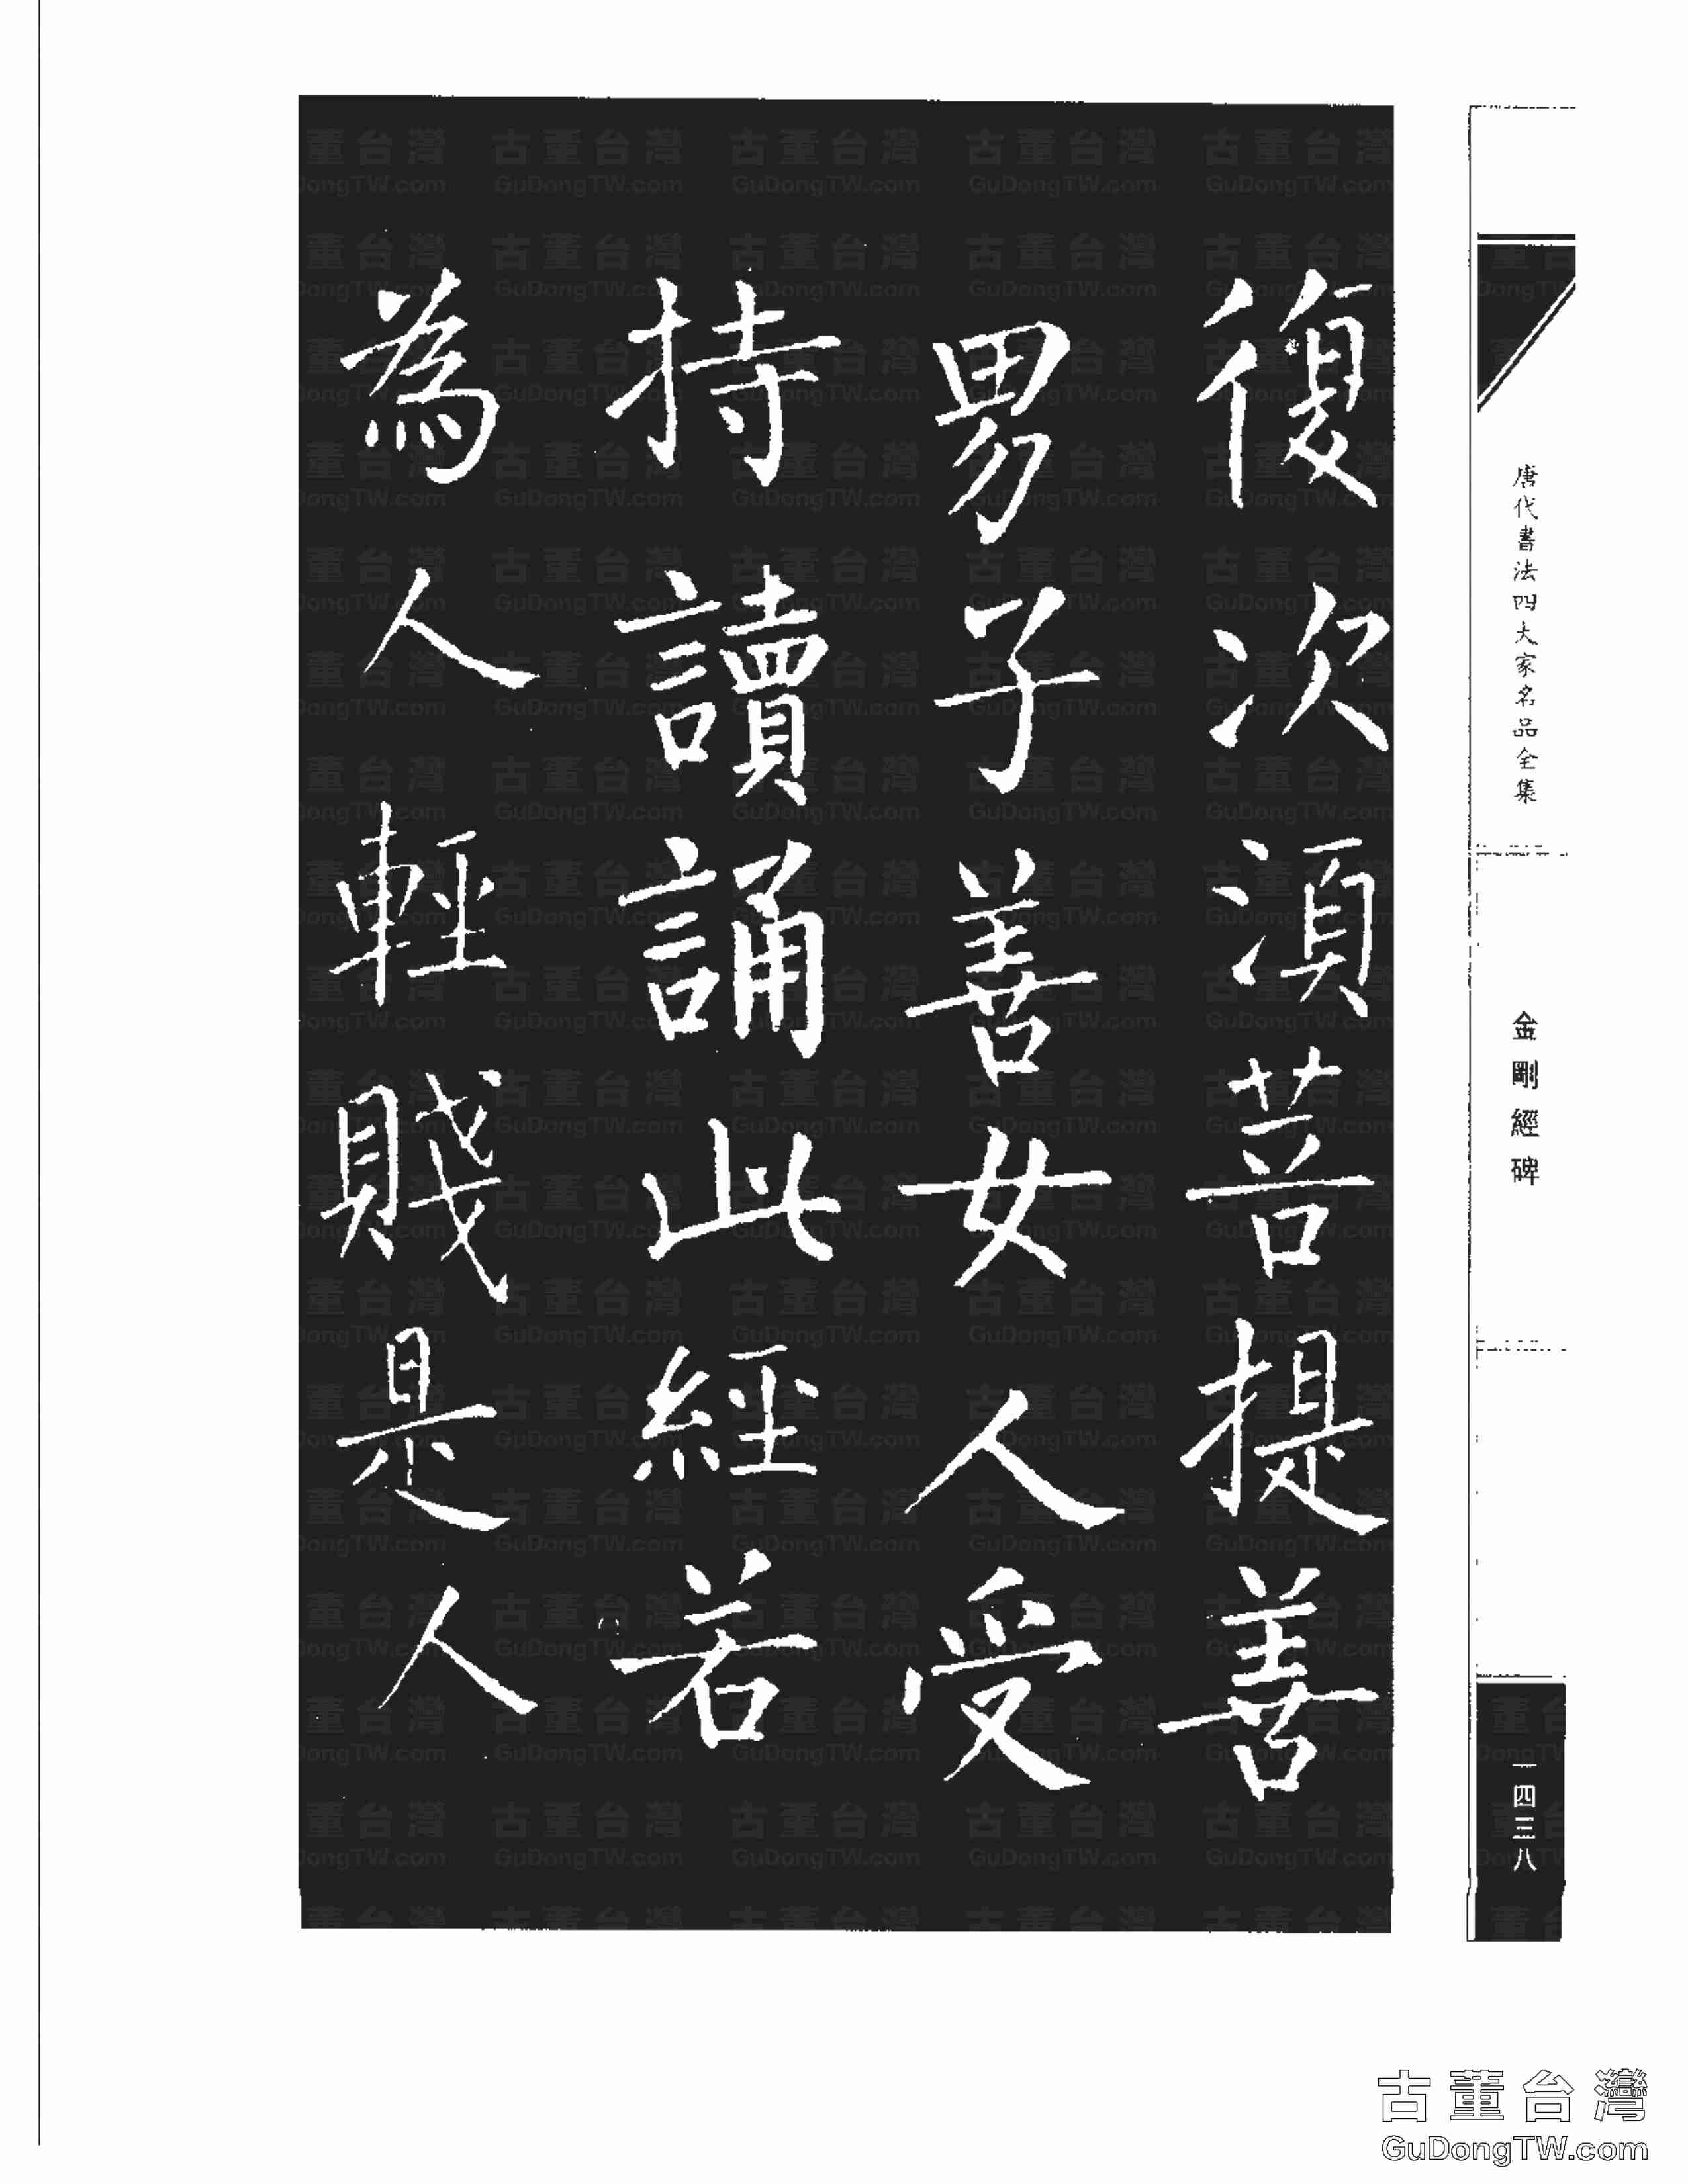 復次須菩提善
男子善女人受
持讀誦此經若
為人輕賤是人
唐代書法四大家名品全集
金剛經碑
一四三八
古董台灣
GuDongTW.com